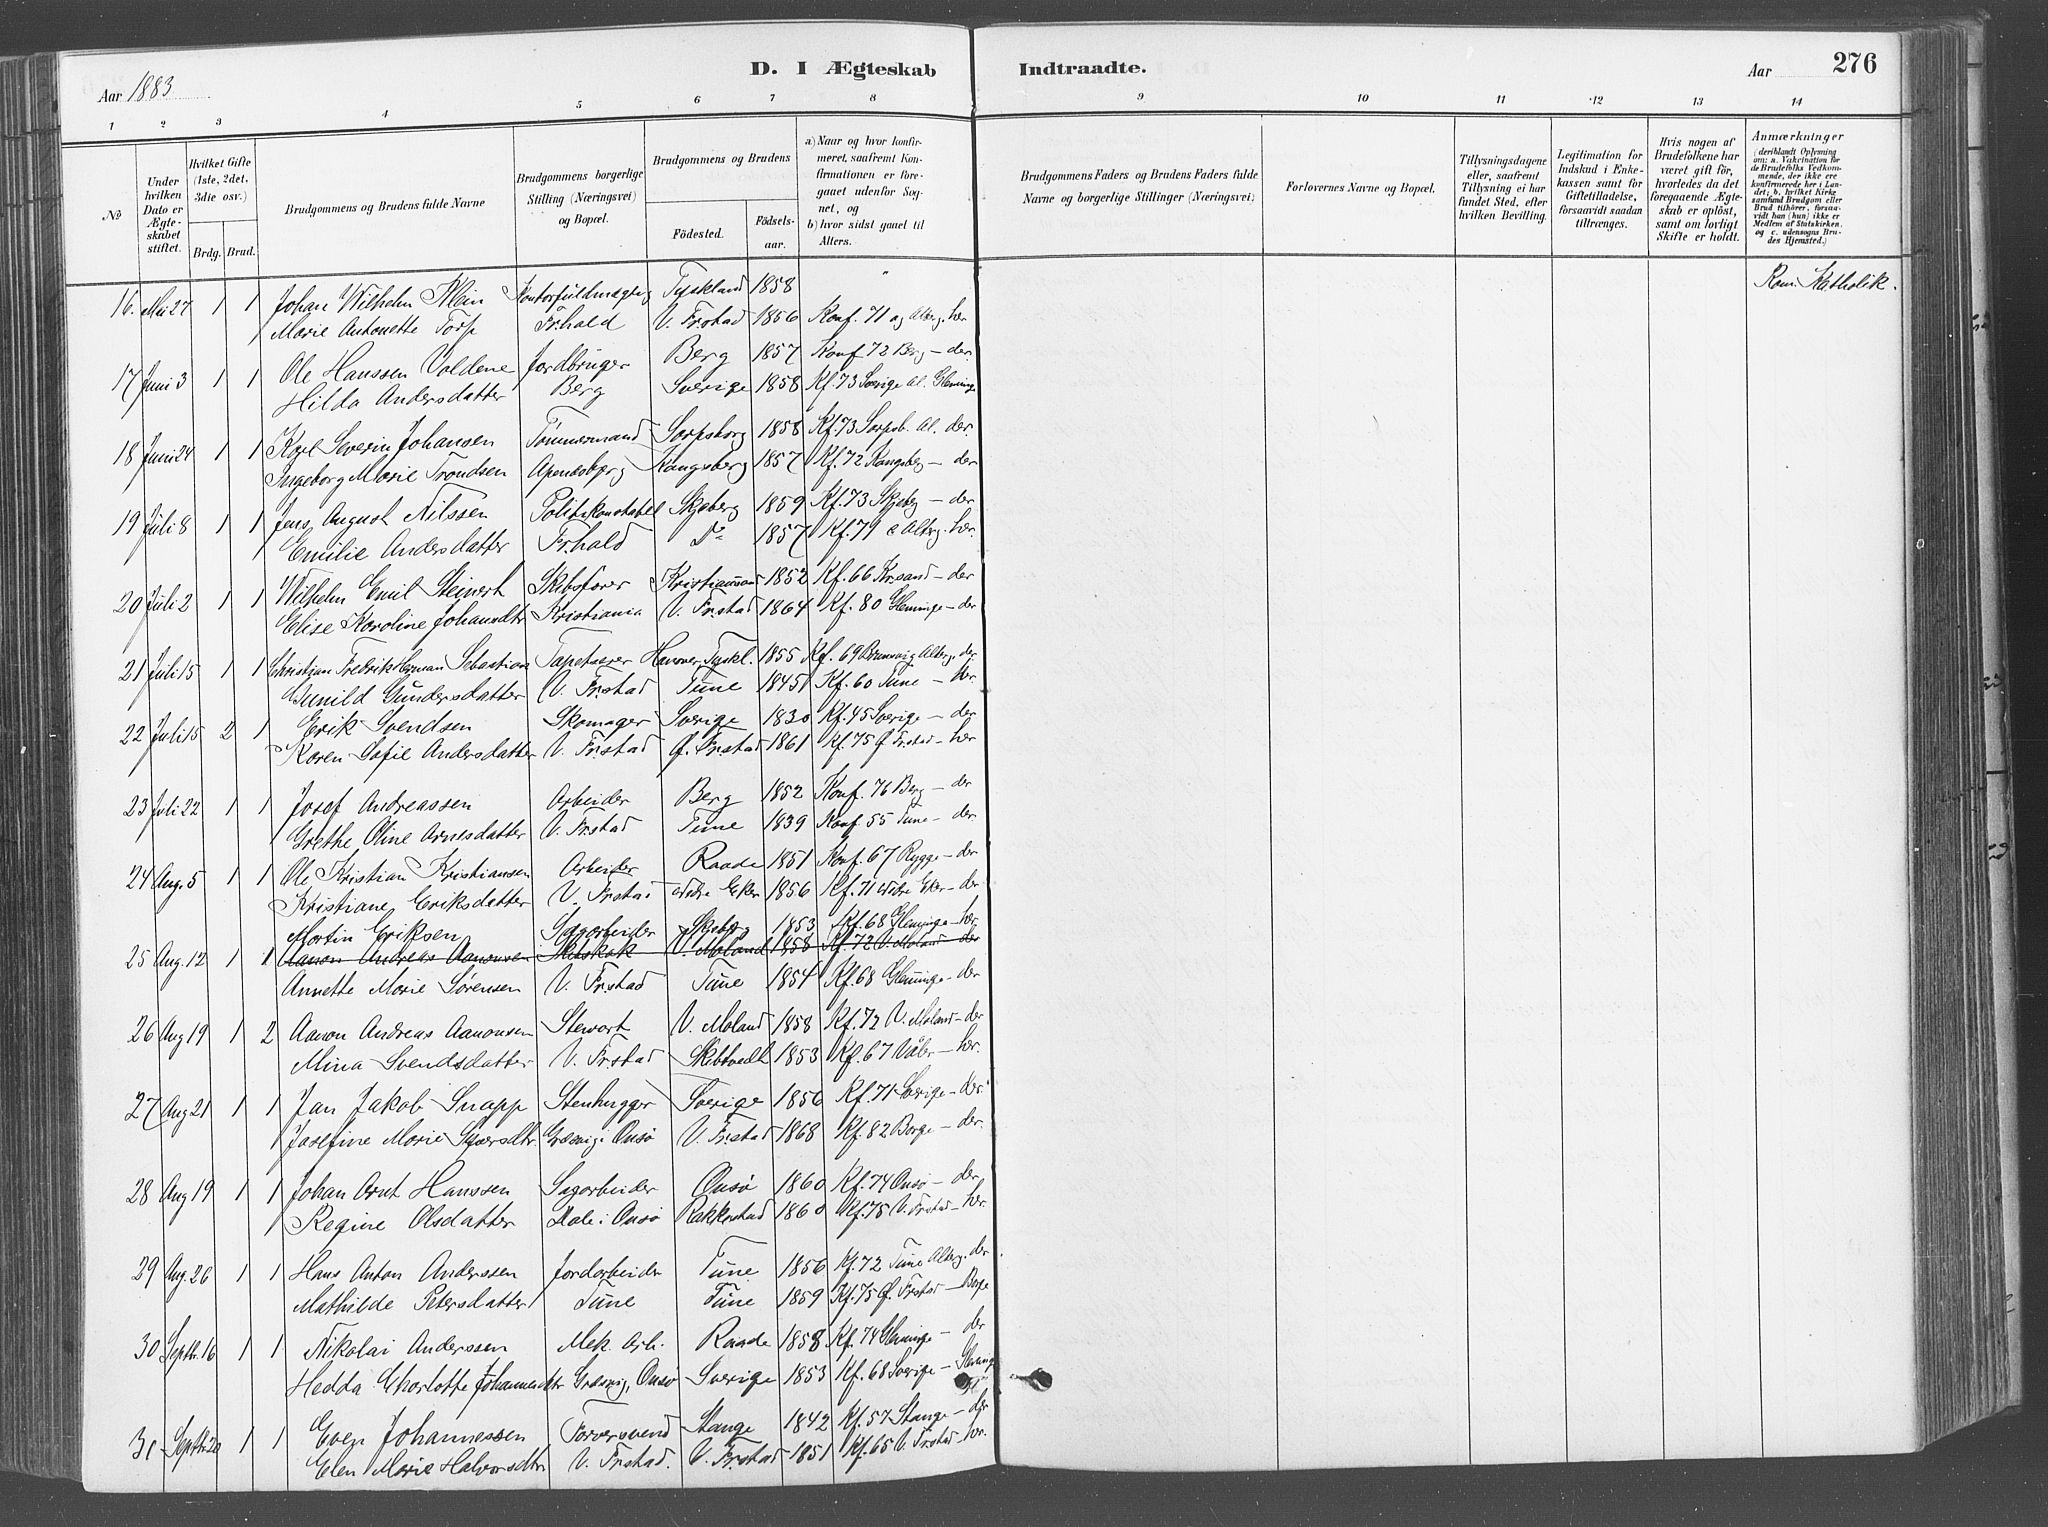 D. I Ægteskab Indtraadte.
Aar 1883
Aar
276
1 2 3 4 5 6 7 8 9 10 11 12 13 14
No
Under hvilken Dato er Ægteskabet stiftet.
Hvilket Gifte (1ste, 2det, 3die osv.)
Brdg. Brud.
Brudgommens og Brudens fulde Navne
Brudgommens borgerlige Stilling (Næringsvei) og Bopæl.
Brudgommens og Brudens
Födested.
Födselsaar.
a) Naar og hvor konfirmeret, saafremt Konfirmationen er foregaaet udenfor Sognet, og
b) hvor sidst gaaet til Alters.
Brudgommens Faders og Brudens Faders fulde Navne og borgerlige Stillinger (Næringsvei)
Forlovernes Navne og Bopæl.
Tillysningsdagene eller, saafremt Tillysning ei har fundet Sted, efter hvilken Bevilling.
Legitimation for Indskud i Enkekassen samt for Giftetilladelse, forsaavidt saadan tiltrænges.
Hvis nogen af Brudefolkene har været gift för, hvorledes da det foregaaende Ægteskab er oplöst, samt om lovligt Skifte er holdt.
Anmærkninger
(deriblandt Oplysning om: a. Vakcination for de Brudefolks Vedkommende, der ikke ere konfirmerede her i Landet; b. hvilket Kirkesamfund Brudgom eller Brud tilhörer, forsaavidt han (hun) ikke er Medlem af Statskirken, og c. udensogns Brudes Hjemsted.)
16. Mai 27 1 1 Johan Wilhelm Klein Kontorfuldmægtig Tyskland 1858 " Rom. Katholik.
Marie Antonette Torp Frhald V. Frstad 1856 Konf. 71 og Alterg. her
17 Juni 3 1 1 Ole Hanssen Voldene Jordbruger Berg 1857 Konf 72 Berg – der.
Hilda Andersdatter Berg Sverige 1858 Kf. 73 Sverige Al. Glemminge
18 Juni 24 1 1 Karl Severin Johansen Tømmermand Sarpsborg 1858 Kf. 73 Sarpsb. Al. der.
Ingeborg Marie Trondsen Apenæsbjerg Kongsberg 1857 Kf. 72 Kongsberg – der
19 Juli 8 1 1 Jens August Nilssen Politikonstabel Skjeberg 1859 Kf. 73 Skjeberg – der
Emilie Andersdatter Frhald Do 1857 Kf. 71 Alterg. her.
20 Juli 2 1 1 Wilhelm Emil Steinert Skibsfører Kristianssand 1852 Kf. 66 Kr.sand – der
Elise Karoline Johansdtr Kristiania V. Frstad 1864 Kf. 80 Glemminge – der
21 Juli 15 1 1 Christian Fredrik Herman Sebastian Tapetserer Hanover Tyskl. 1855 Kf. 69 Alterg. der
Gunild Gundersdatter V. Frstad Tune 1845 Kf. 60 Tune – her.
22 Juli 15 2 1 Erik Svendsen Skomager Sverige 1830 Kf. 45 Sverige – der
Karen Sofie Andersdatter V. Frstad Ø. Frstad 1861 Kf. 75 Ø Frstad – her
23 Juli 22 1 1 Josef Andreassen Arbeider Berg 1852 Konf. 76 Berg – der
Grethe Oline Arnesdatter V. Frstad Tune 1839 Konf. 55 Tune – der.
24 Aug. 5 1 1 Ole Kristian Kristiansen Arbeider Raade 1851 Konf. 67 Rygge – der
Kristiane Eriksdatter V. Frstad Nedre Eker 1856 Kf. 71 Nedre Eker – der.
Martin Eriksen Sagarbeider Skjeberg 1853 Kf. 68 Glemminge – her.
25 Aug. 12 1 1 Aanon Andreas Aanonsen Skibskok V. Moland 1858 Kf. 72 V. Moland – der
Annette Marie Sørensen V. Frstad Tune 1854 Kf. 68 Glemminge – der
26 Aug 19 1 2 Aanon Andreas Aanonsen Stewart V. Moland 1858 Kf. 72 V. Moland – der
Mina Svendsdatter V. Frstad Skibtvedt 1853 Kf. 67 Våler – her.
27 Aug 21 1 1 Jan Jakob Snapp Stenhugger Sverige 1856 Kf. 71 Sverige – der.
Josefine Marie Græsvig i Onsø V. Frstad 1868 Kf. 82 Borge – der.
28 Aug 19 1 1 Johan Arnt Hanssen Sagarbeider Onsø 1860 Kf. 74 Onsø – der.
Regine Olsdatter Dale i Onsø Rakkestad 1860 Kf. 75 V. Frstad – her.
29 Aug. 26 1 1 Hans Anton Anderssen Jordarbeider Tune 1856 Kf. 72 Tune Alterg. der
Mathilde Petersdatter Tune Tune 1859 Kf. 75 Ø. Frstad – Borge
30 Septbr. 16 1 1 Nikolai Anderssen Mek. Arb. Raade 1858 Kf. 74 Glemminge – der
Hedda Charlotte Johannesdtr Græsvig, Onsø Sverige 1853 Kf. 68 Sverige –
31 Septbr. 20 1 1 Even Johannessen Farversvend Stange 1842 Kf. 57 Stange – der
Elen Marie Halvorsdtr V. Frstad. V. Frstad 1851 Kf. 65 V. Frstad – her.